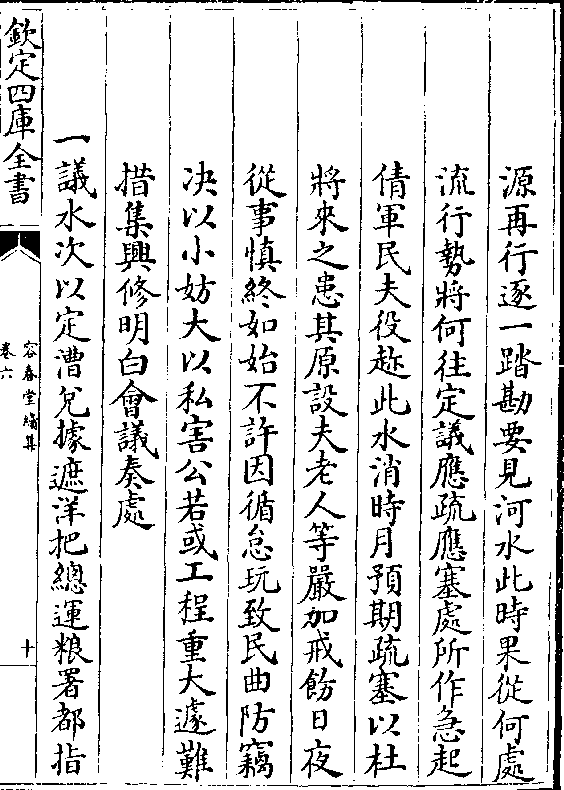 源再行逐一踏勘要見河水此時果從何處
流行勢將何往定議應疏應塞處所作急起
倩軍民夫役趂此水消時月預期疏塞以杜
將來之患其原設夫老人等嚴加戒飭日夜
從事慎終如始不許因循怠玩致民曲防竊
决以小妨大以私害公若或工程重大遽難
措集興修明白會議奏處
一議水次以定漕兌據遮洋把總運粮署都指
欽定四庫全書
容春堂續集
卷六
十